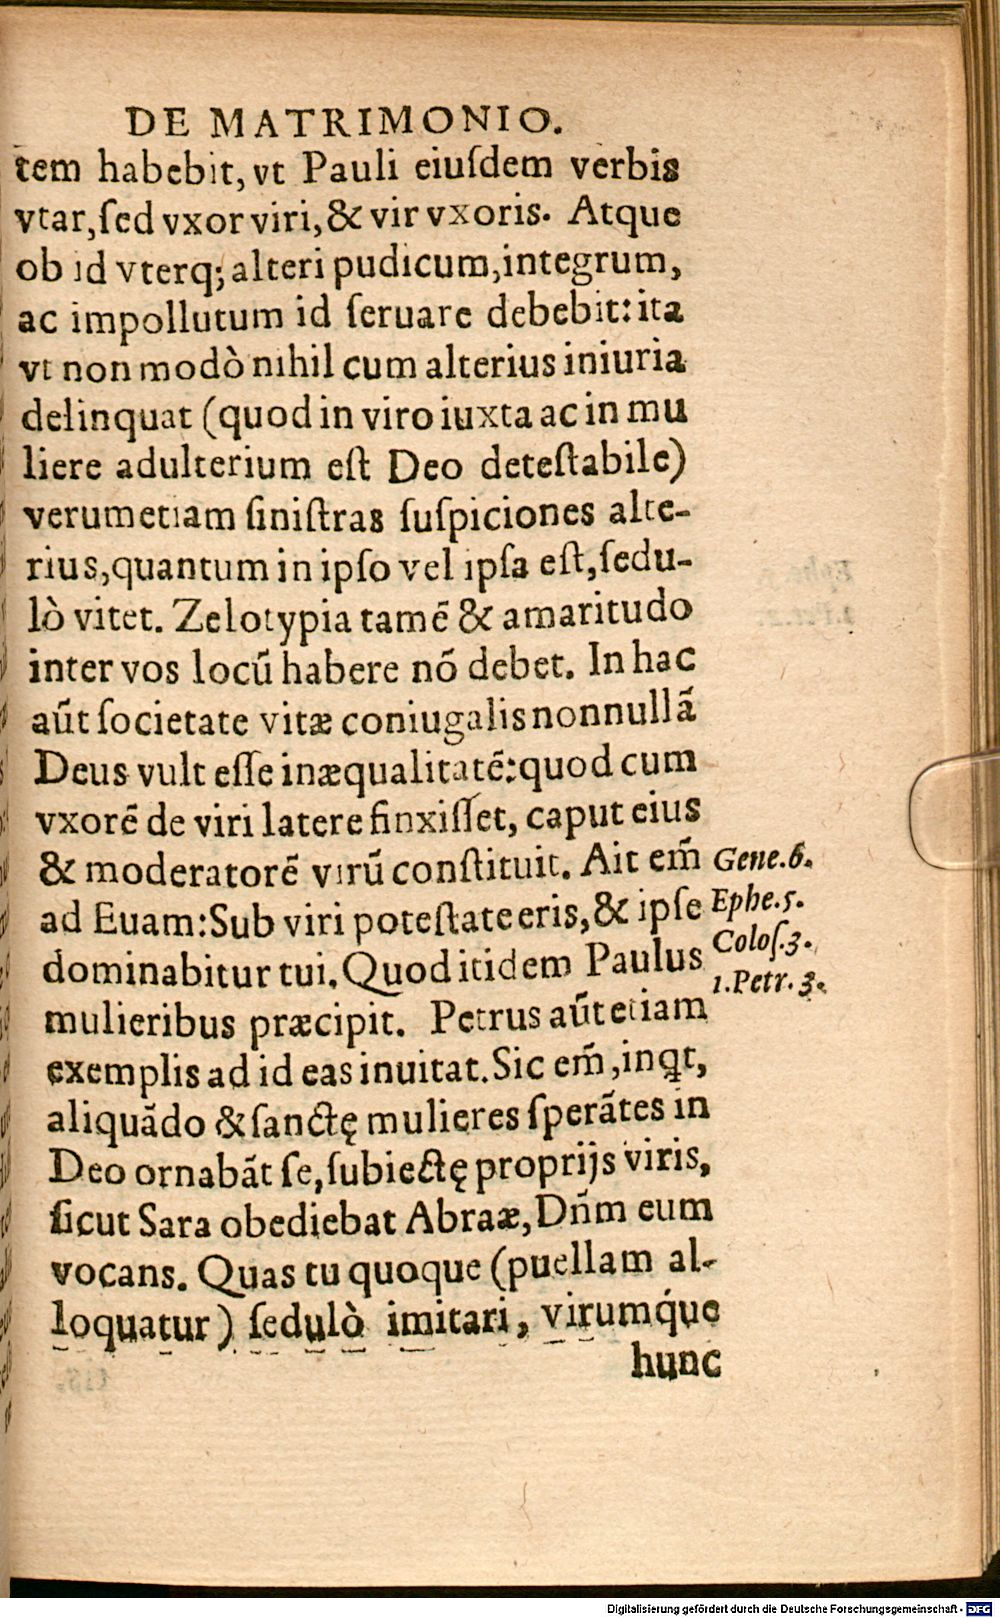 DE MATRIMONIO.
tem habebit, vt Pauli eiuſdem verbis
vtar, ſed vxor viri, & vir vxoris. Atque
ob id vterq; alteri pudicum, integrum,
ac impollutum id ſeruare debebit: ita
vt non modò nihil cum alterius iniuria
delinquat (quod in viro iuxta ac in mu
liere adulterium eſt Deo deteſtabile)
verumetiam ſiniſtras ſuſpiciones alte-
rius, quantum in ipſo vel ipſa eſt, ſedu-
lò vitet. Zelotypia tamē & amaritudo
inter vos locū habere nō debet. In hac
aūt ſocietate vitæ coniugalis nonnullā
Deus vult eſſe inæqualitatē: quod cum
vxorē de viri latere finxiſſet, caput eius
& moderatorē virū conſtituit. Ait em̄ Gene.6.
ad Euam: Sub viri poteſtate eris, & ipſe Ephe.5.
dominabitur tui. Quod itidem Paulus Coloſ.3.
1.Petr.3.
mulieribus præcipit. Petrus aūt etiam
exemplis ad id eas inuitat. Sic em̄, inqt,
aliquādo & ſanctę mulieres ſperātes in
Deo ornabāt ſe, ſubiectę proprijs viris,
ſicut Sara obediebat Abraæ, Dn̄m eum
vocans. Quas tu quoque (puellam al-
loquatur) ſedulò imitari, virumq́ue
hunc
Digitalisierung gefördert durch die Deutsche Forschungsgemeinschaft - DFG